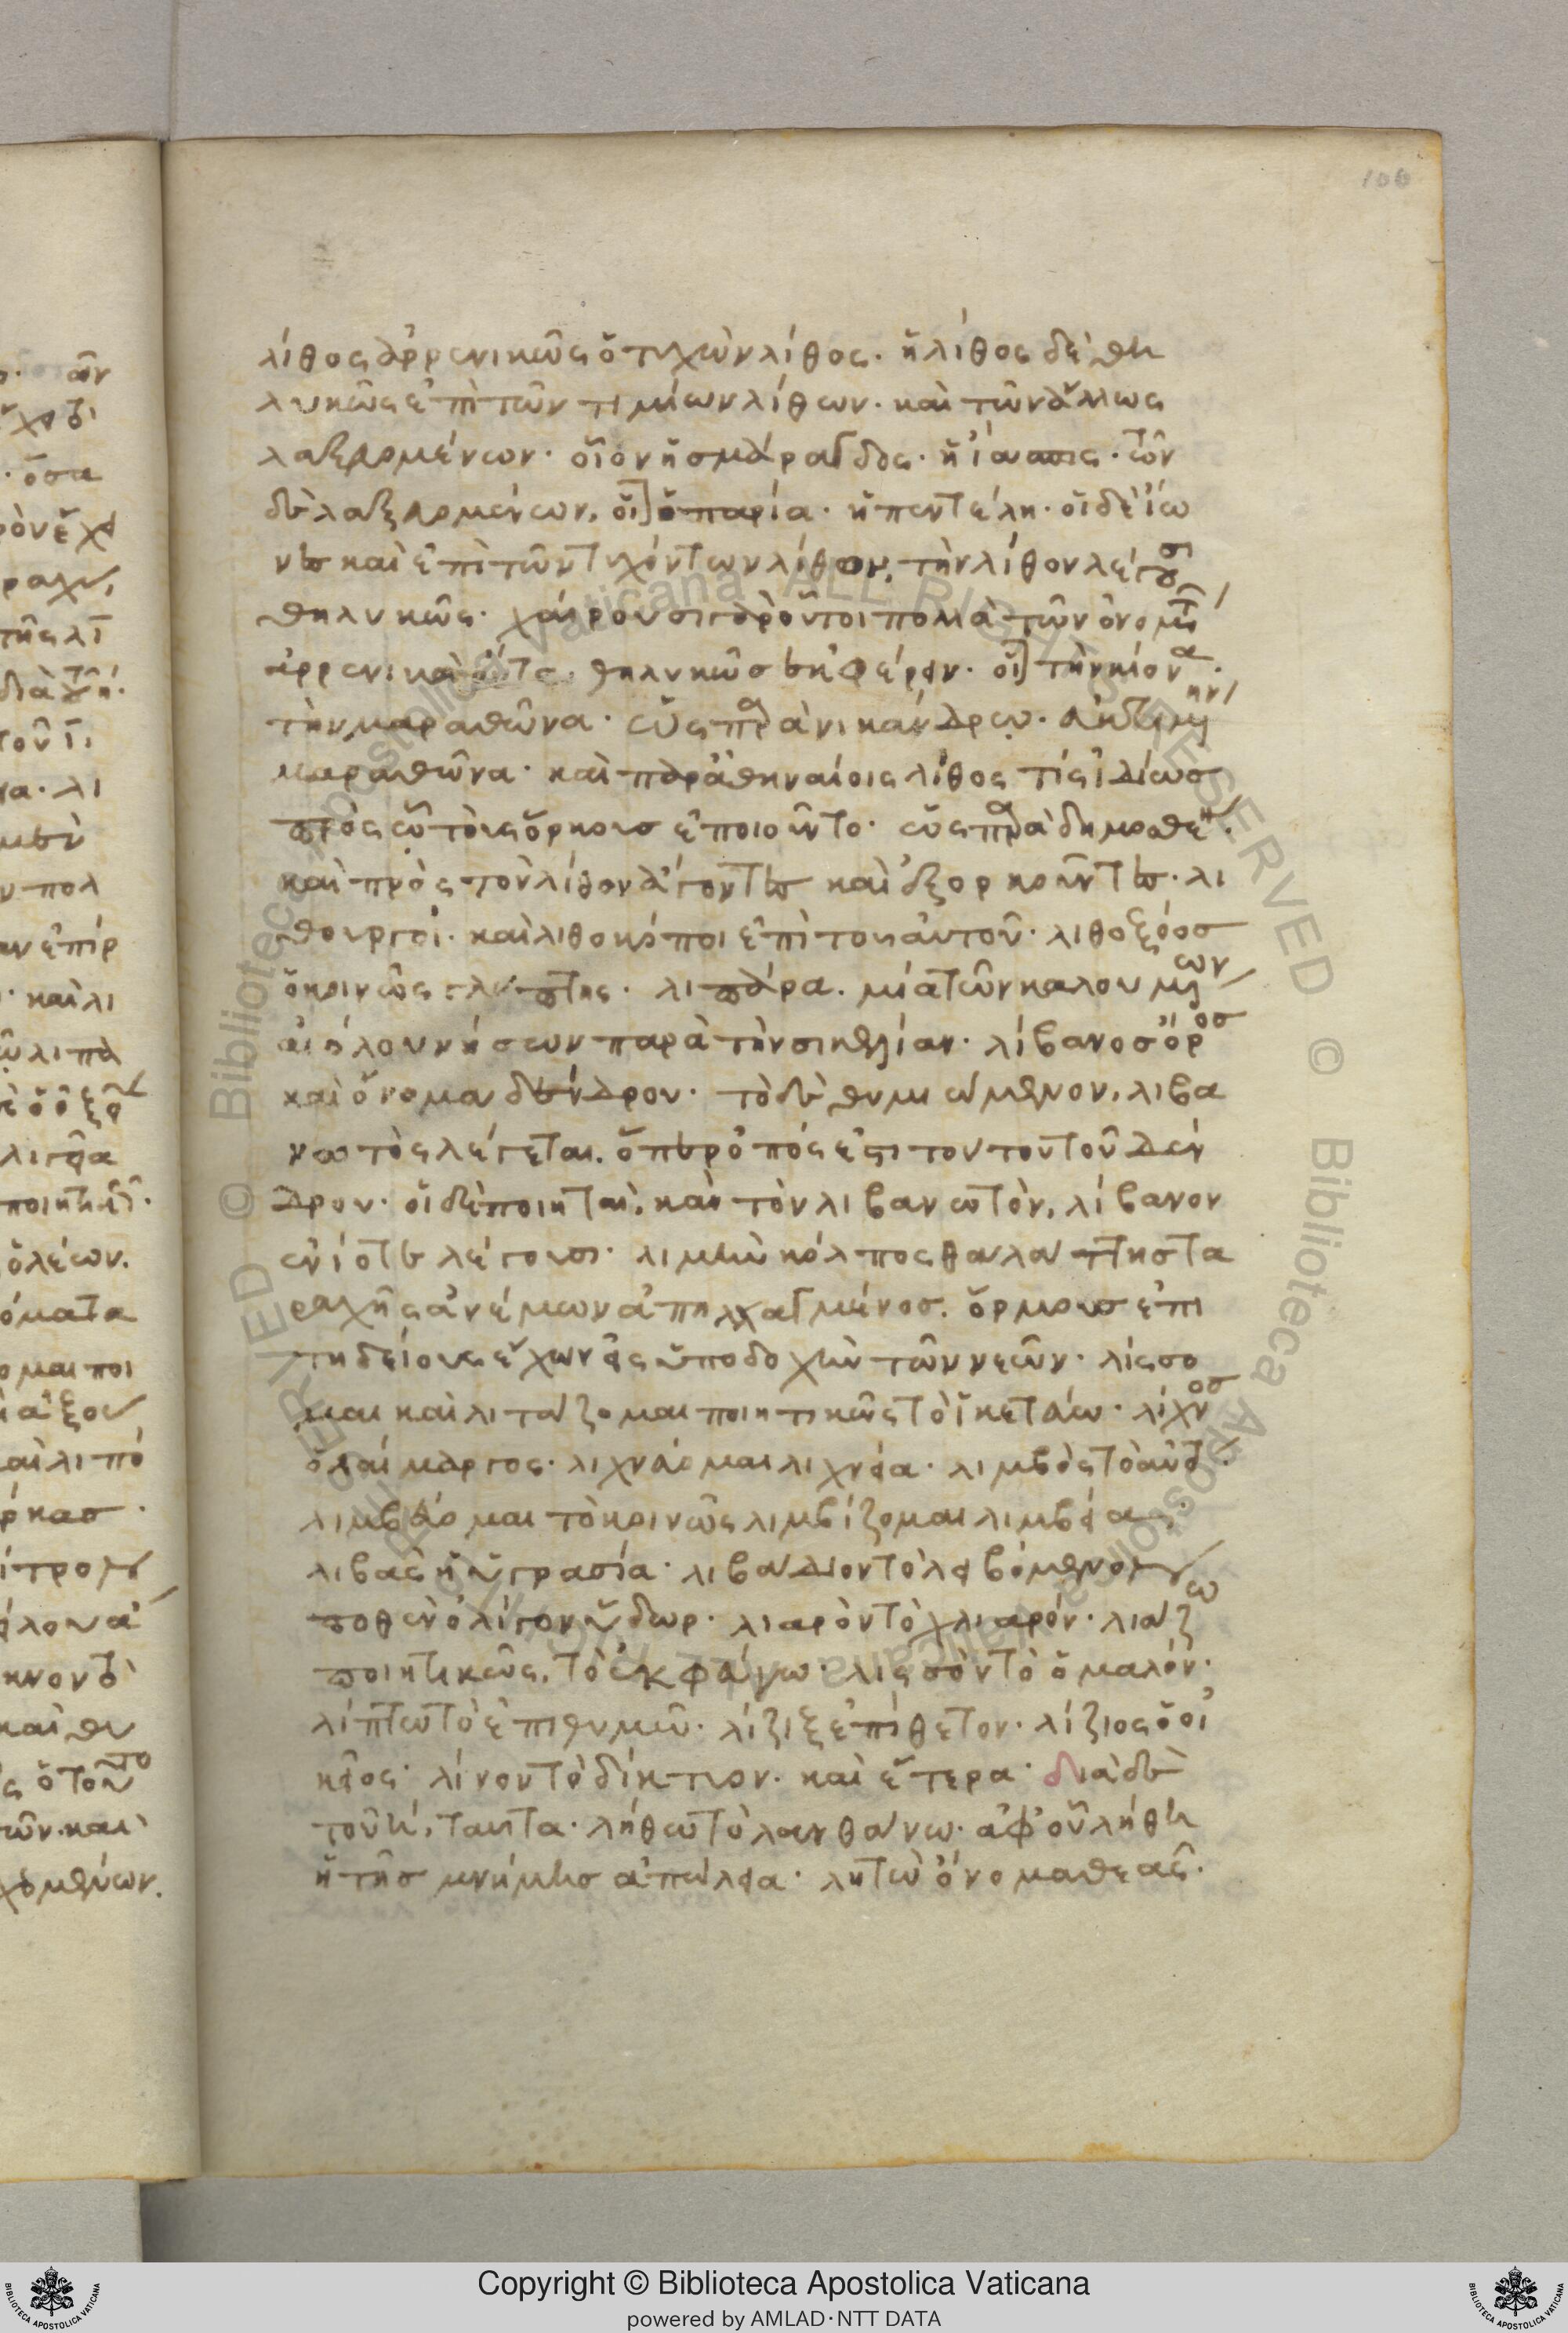 106
λίθος ἀρρενικῶς ὁ τυχὼν λίθος· ἡ λίθος δὲ θη
λυκῶς ἐπὶ τῶν τιμίων λίθων· καὶ τῶν ἄλλως
λαξευομένων· οἷον ἡ σμάραγδος· ἡ ἴασπις· τῶν
δὲ λαξευομένων, οἷον ἡ παρία· ἡ πεντέλη· οἱ δὲ ἴω
νες καὶ ἐπὶ τῶν τυχόντων λίθων, τὴν λίθον λέγουσι
θηλυκῶς· χαίρουσι γὰρ οὗτοι πολλὰ τῶν ὀνομάτων
ἀρρενικὰ ὄντα, θηλυκῶς ἐκφέρειν· οἷον τὴν κίονα·
τὴν μαραθῶνα· ὡς παρὰ νικάνδρῳ· ἀκτιμένην
μαραθῶνα· καὶ παρ' ἀθηναίοις λίθος τίς ἰδίως
πρὸς ᾧ τοὺς ὅρκους ἐποιοῦντο· ὡς παρὰ δημοσθένει·
καὶ πρὸς τὸν λίθον ἄγοντες καὶ ἐξορκοῦντες· λι
θουργοί· καὶ λιθοκόποι ἐπὶ τοῦ αὐτοῦ· λιθοξόος
ὁ κοινῶς γλύπτης· λιπάρα· μία τῶν καλουμένων
αἰόλου νήσων παρὰ τὴν σικελίαν· λίβανος ὄρος
καὶ ὄνομα δένδρου· τὸ δὲ θυμιώμενον, λιβα
νωτὸς λέγεται, ὅπερ ὀπός ἐστι τοῦ τοιούτου δέν
δρου· οἱ δὲ ποιηταί, καὶ τὸν λιβανωτὸν, λίβανον
ἐνίοτε λέγουσι· λιμὴν κόλπος θαλάττης τα
ραχῆς ἀνέμων ἀπηλλαγμένος, ὅρμους ἐπι
τηδείους ἔχων εἰς ὑποδοχὴν τῶν νεῶν· λίσσο
μαι καὶ λιτάζομαι ποιητικῶς τὸ ἱκετεύω· λίχνος
ὁ λαίμαργος· λιχνεύομαι λιχνεία· λιμβὸς τὸ αὐτό·
λιμβεύομαι τὸ κοινῶς λιμβίζομαι λιμβεία·
λιβὰς ἡ ὑγρασία· λιβάδιον τὸ λειβόμενον
ποθὲν ὀλίγον ὕδωρ· λιαρὸν τὸ χλιαρόν· λιάζω
ποιητικῶς, τὸ ἐκφαίνω· λισσὸν τὸ ὁμαλόν·
λίπτω τὸ ἐπιθυμῶ· λίζιξ ἐπίθετον· λίζιος ὁ οἰ
κεῖος· λίνον τὸ δίκτυον· καὶ ἕτερα· διὰ δὲ
τοῦ η, ταῦτα· λήθω τὸ λανθάνω· ἀφ' οὗ λήθη
ἡ τῆς μνήμης ἀπώλεια· λητὼ ὄνομα θεᾶς·
Copyright © Biblioteca Apostolica Vaticana
powered by AMLAD·NTT DATA